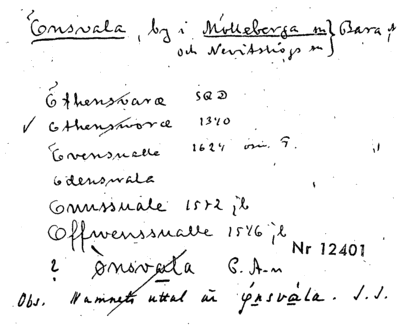 Önsvala, by i Mölleberga sn } Bara h
och Nevitshögs sn }
Othensvaræ SRD
✓ Othensworæ 1340
Ovensualle 1624
Odenswala
Onussuale 1572 jb
Offwenssualle 1546 jb
Nr 12401
? Önsvala C. A-n
Obs. Namnets uttal är ǫ́nsvàla. J. S.